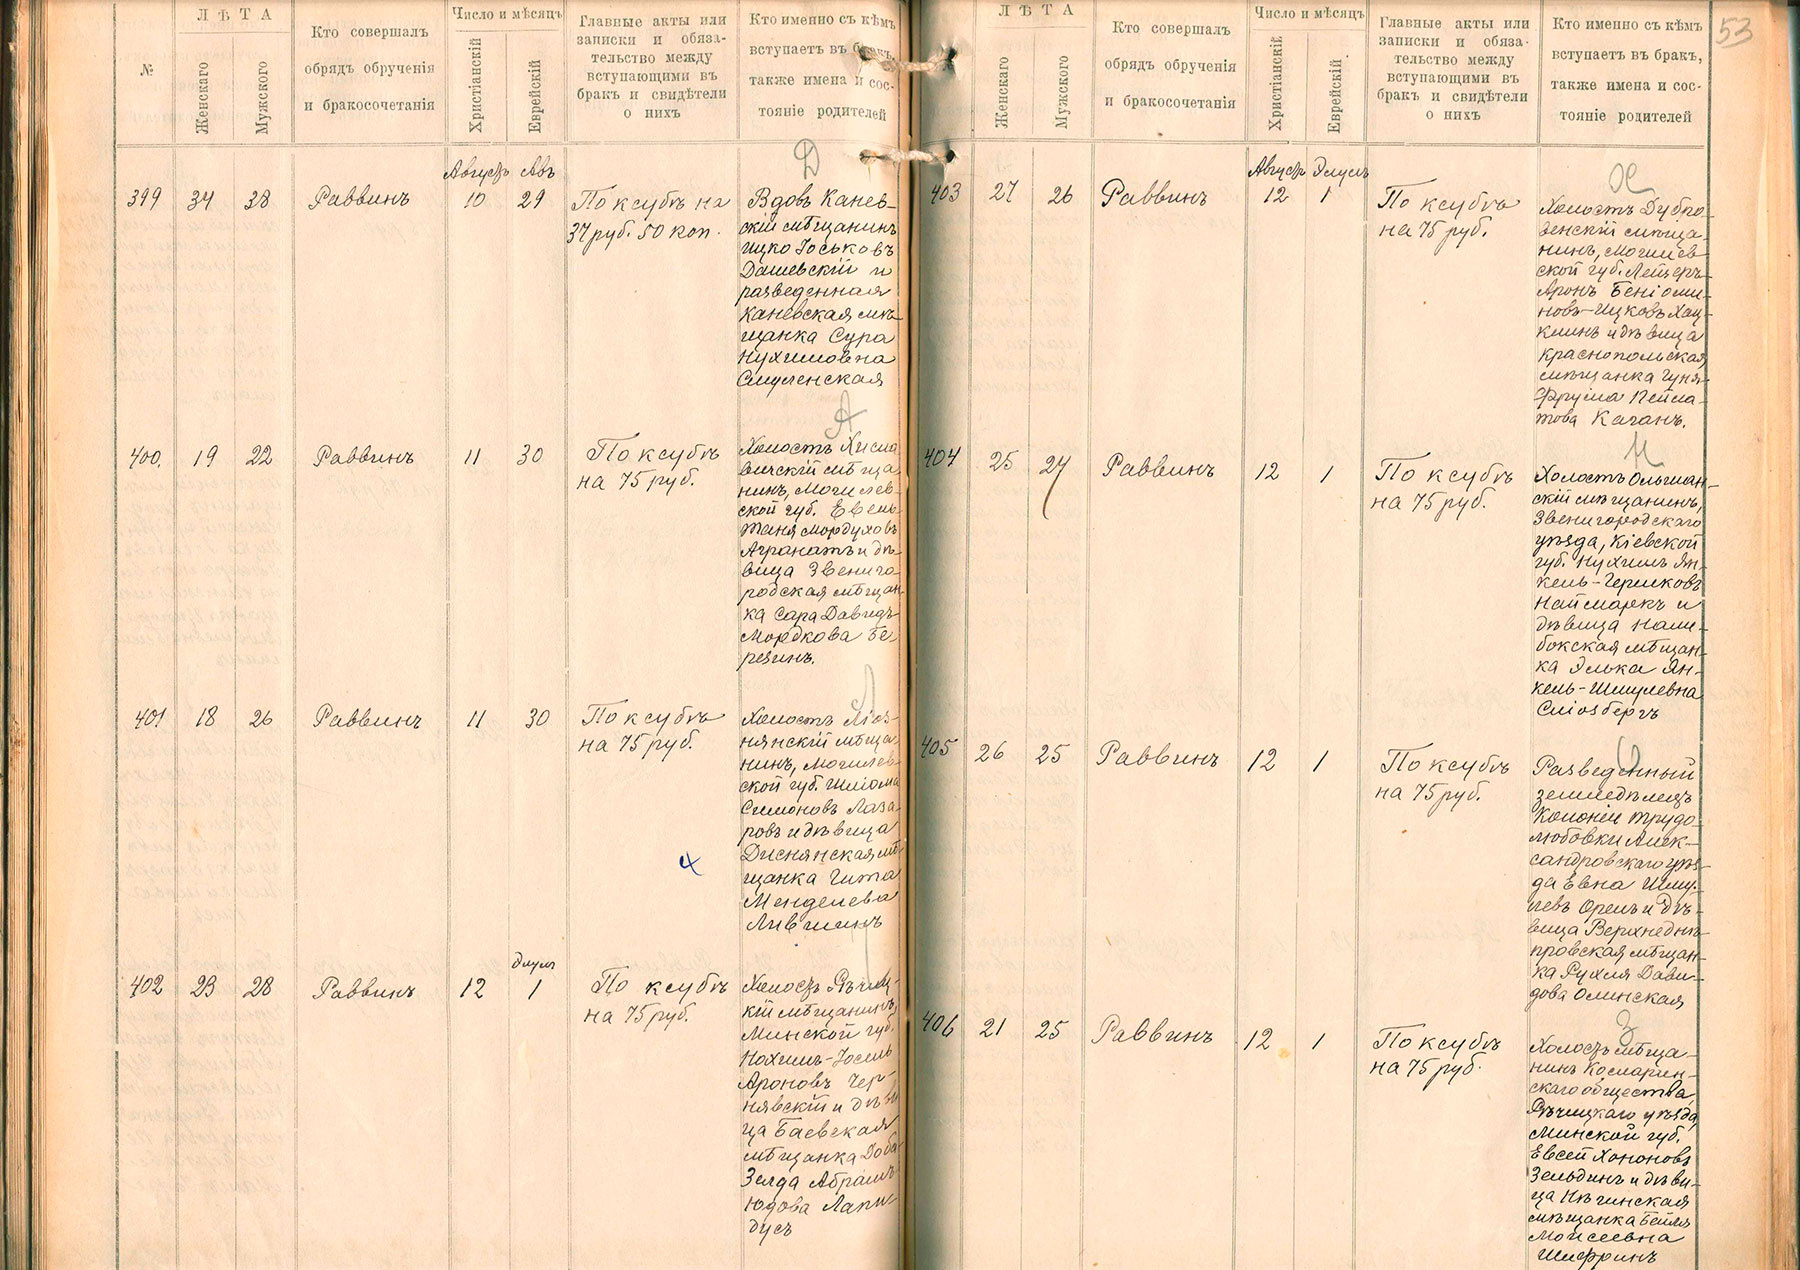 №
ЛѢТА
Женскаго
Мужского
Кто совершалъ
обрядъ обрученія
и бракосочетанія
Число и мѣсяцъ
Христіанскій
Еврейскій
Главные акты или
записки и обяза-
тельство между
вступающими въ
бракъ и свидѣтели
о нихъ
Кто именно съ кѣмъ
вступаетъ въ бракъ,
также имена и сос-
тояніе родителей
Д
399 34 38 Раввинъ Августъ 10 Авъ 29
По ксубѣ на
37 руб. 50 коп.
Вдовъ Канев-
скій мѣщанинъ
Ицко Іоськовъ
Дашевскій и
разведенная
Каневская мѣ-
щанка Сура
Нухимовна
Смуленская
А
400. 19 22 Раввинъ 11 30
По ксубѣ
на 75 руб.
Холостъ Хисла
вичскій мѣща
нинъ, Могилев-
ской губ. Евель-
Таня Мордуховъ
Агранатъ и дѣ-
вица Звениго-
родская мѣщан-
ка Сара Давидъ-
Мордкова Бе-
резинъ.
Л
401 18 26 Раввинъ 11 30
По ксубѣ
на 75 руб.
Холостъ Ліоз-
нянскій мѣща-
нинъ, Могилев-
ской губ. Шліома
Симоновъ Лаза-
ровъ и дѣвица
Диснянская мѣ-
щанка Гита
Менделева
Лившинъ
402 23 28 Раввинъ 12 Элулъ 1
По ксубѣ
на 75 руб.
Холостъ Рѣчиц-
кій мѣщанинъ,
Минской губ.
Нохимъ-Іосель
Ароновъ Чер-
нявскій и дѣви
ца Баевская
мѣщанка Доба-
Зелда Абрамъ-
Юдова Лапи-
дусъ
53
ЛѢТА
Женскаго
Мужского
Кто совершалъ
обрядъ обрученія
и бракосочетанія
Число и мѣсяцъ
Христіанскій
Еврейскій
Главные акты или
записки и обяза-
тельство между
вступающими въ
бракъ и свидѣтели
о нихъ
Кто именно съ кѣмъ
вступаетъ въ бракъ,
также имена и сос-
тояніе родителей
Х
403 27 26 Раввинъ Августъ 12 Элулъ 1
По ксубѣ
на 75 руб.
Холостъ Дубро-
венскій мѣща-
нинъ, Могилев-
ской губ. Лейзеръ-
Аронъ Беніоми-
новъ-Ицковъ Хай-
кинъ и дѣвица
Краснопольская
мѣщанка Гуня-
Фрума Пейса-
хова Каганъ.
Н
404 25 27 Раввинъ 12 1
По ксубѣ
на 75 руб.
Холостъ Ольшан-
скій мѣщанинъ,
Звенигородскаго
уѣзда, Кіевской
губ. Нухимъ Ян-
кель-Гершковъ
Наймаркъ и
дѣвица Нали-
бокская мѣщан-
ка Элька Ян-
кель-Шмулевна
Сліозбергъ
О
405 26 25 Раввинъ 12 1
По ксубѣ
на 75 руб.
Разведенный
земледѣлецъ
Колоніи Трудо-
любовки Алек-
сандровскаго уѣз-
да Евна Шму-
левъ Орелъ и дѣ-
вица Верхнеднѣ-
провская мѣщан-
ка Рухля Дави-
дова Олинская
З
406 21 25 Раввинъ 12 1
По ксубѣ
на 75 руб.
Холостъ мѣща-
нинъ Комарин-
скаго общества,
Рѣчицкаго уѣзда,
Минской губ.
Евсей Хононовъ
Зельдинъ и дѣви-
ца Нѣжинская
мѣщанка Бейля
Моисеевна
Шифринъ